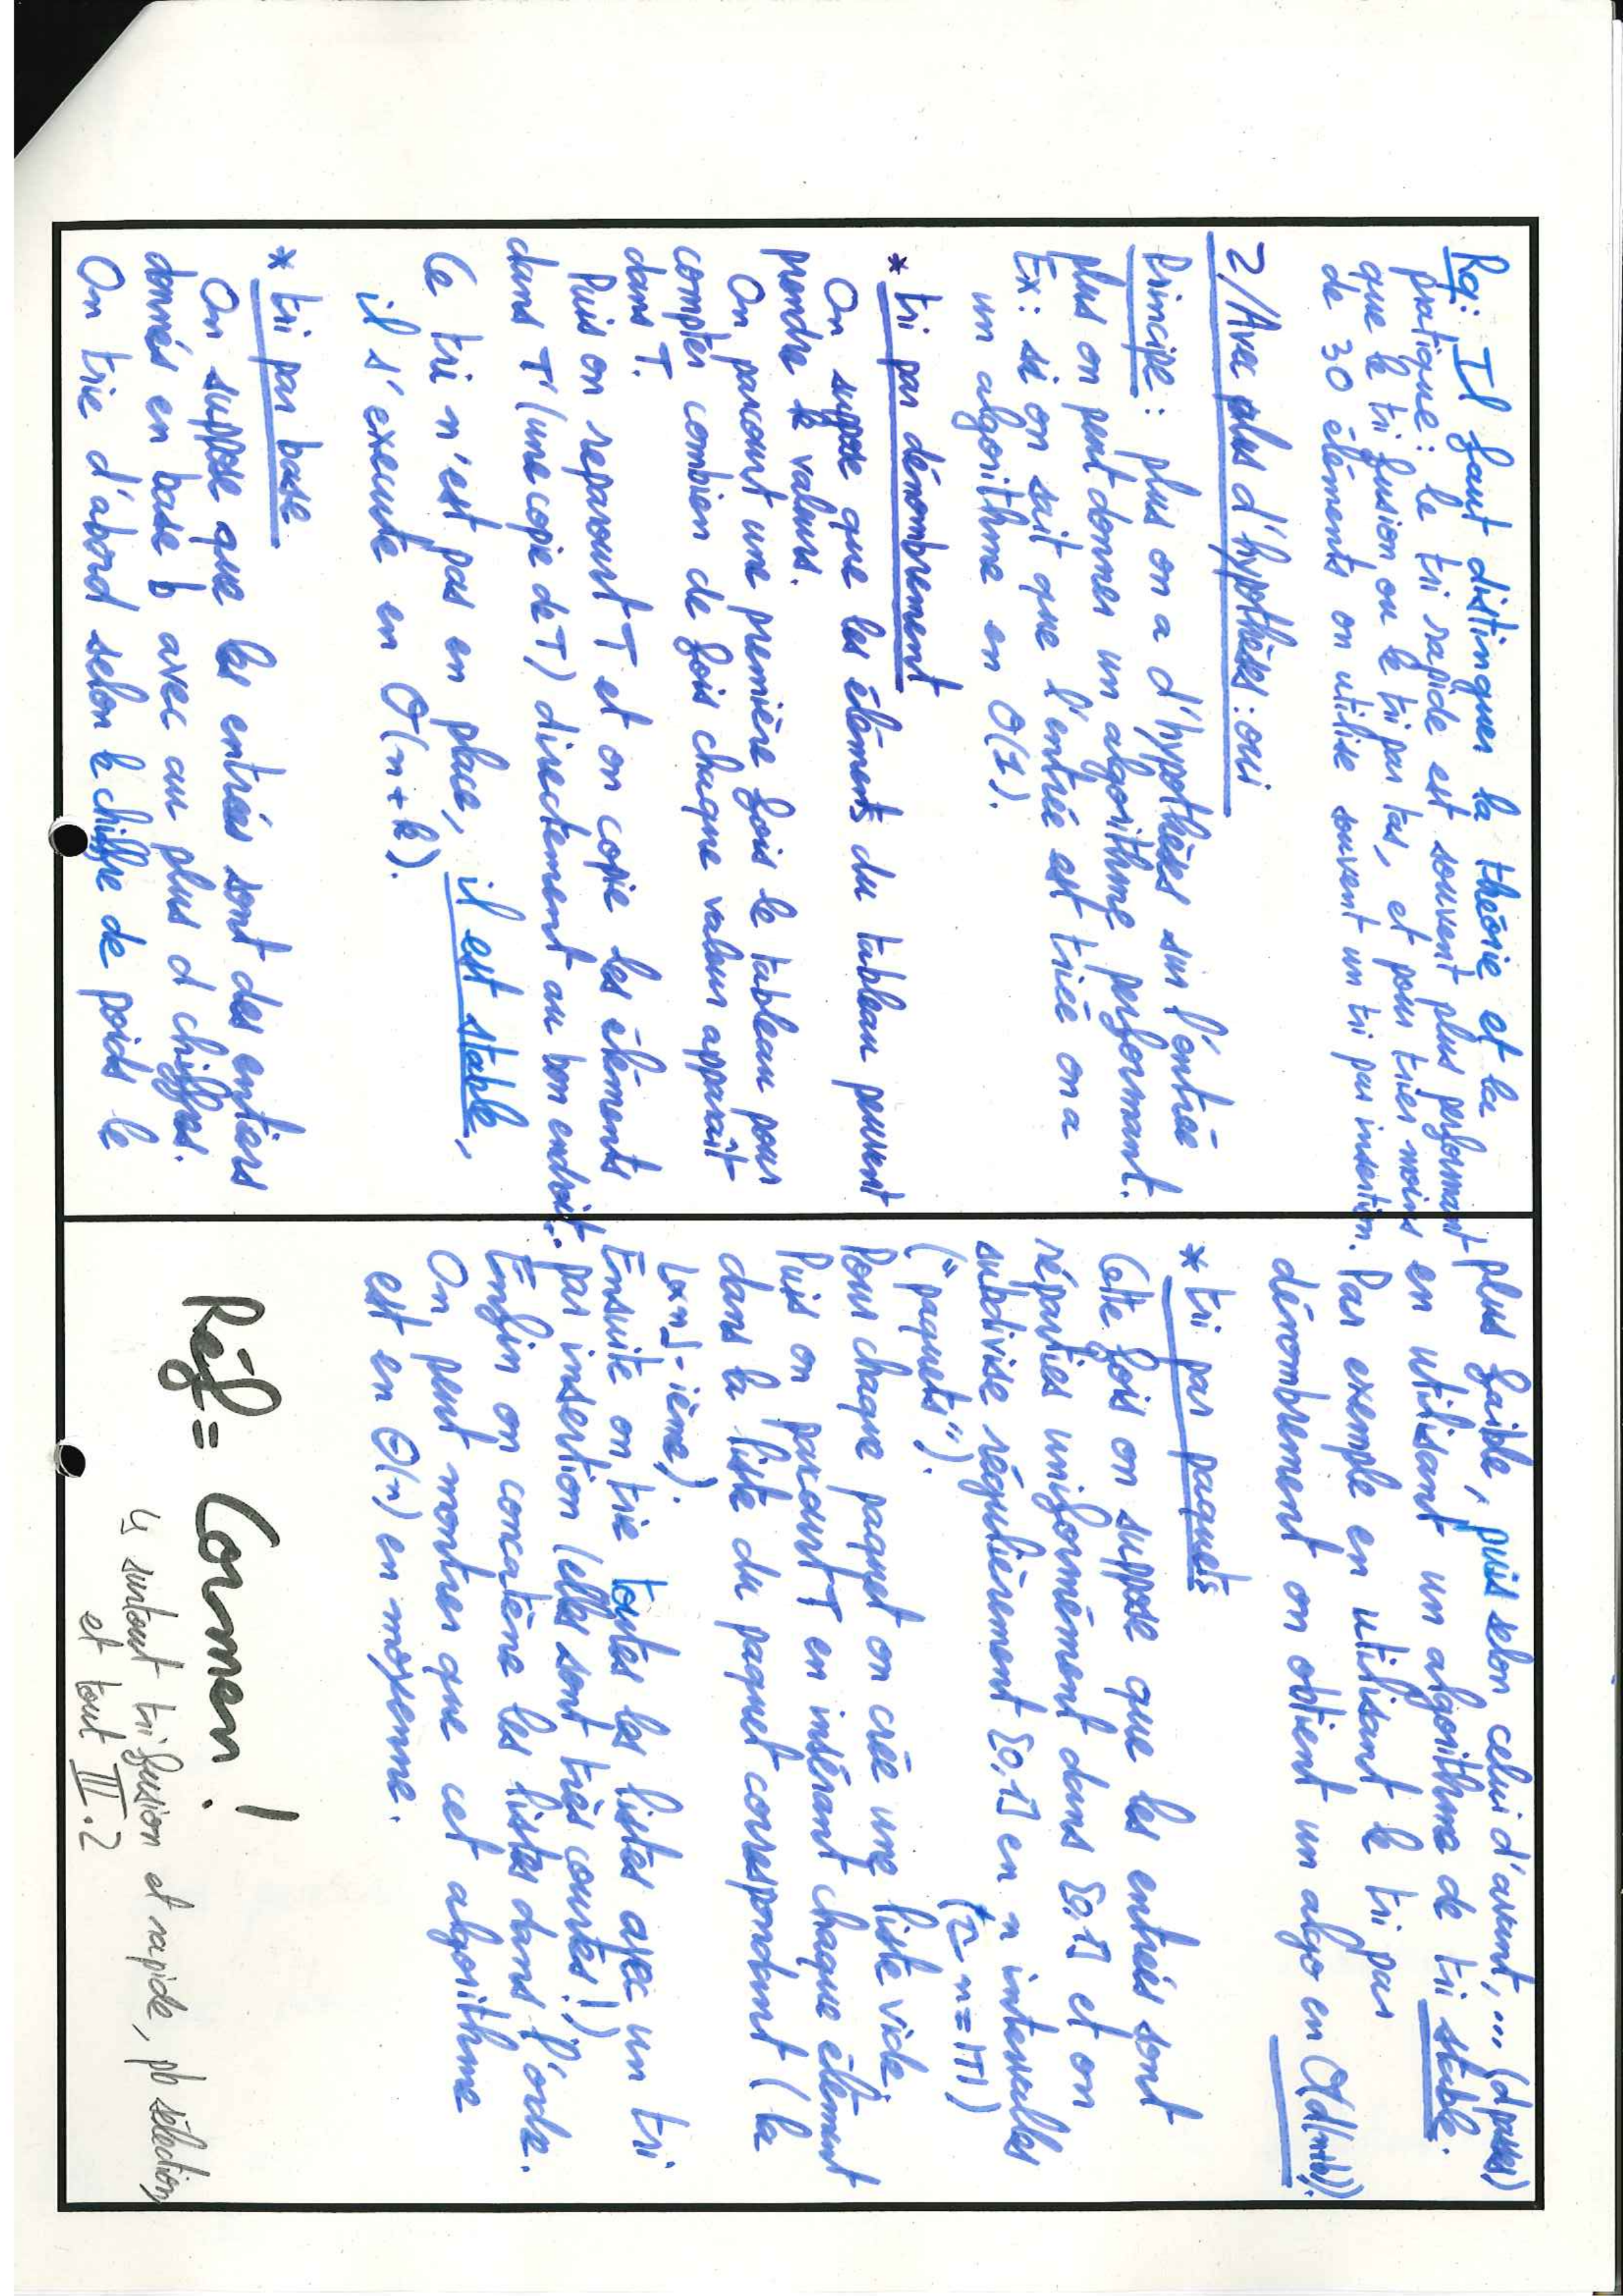 Rq: Il faut distinguer la théorie et la
pratique : le tri rapide est souvent plus performant
que le tri fusion ou le tri par tas, et pour trier moins
de 30 éléments on utilise souvent un tri par insertion.
2/ Avec plus d'hypothèses : oui
Principe : plus on a d'hypothèses sur l'entrée
plus on peut donner un algorithme performant.
Ex : si on sait que l'entrée est triée on a
un algorithme en O(1).
* tri par dénombrement
On suppose que les éléments du tableau peuvent
prendre k valeurs.
On parcourt une première fois le tableau pour
compter combien de fois chaque valeur apparaît
dans T.
Puis on reparcourt T et on copie les éléments
dans T' (une copie de T) directement au bon endroit.
Ce tri n'est pas en place, il est stable,
il s'execute en O(n+k).
* tri par base
On suppose que les entrées sont des entiers
donnés en base b avec au plus d chiffres.
On trie d'abord selon le chiffre de poids le
plus faible, puis selon celui d'avant, ... (d passes)
en utilisant un algorithme de tri stable.
Par exemple en utilisant le tri par
dénombrement on obtient un algo en O(d(n+b)).
* tri par paquets
Cette fois on suppose que les entrées sont
réparties uniformément dans [0,1[ et on
subdivise régulièrement [0,1[ en n intervalles
("paquets"). (n=|T|)
Pour chaque paquet on crée une liste vide,
Puis on parcourt T en insérant chaque élément
dans la liste du paquet correspondant (la
⌊xn⌋-ième).
Ensuite on trie toutes les listes avec un tri
par insertion (elles sont très courtes !)
Enfin on concatène les listes dans l'ordre.
On peut montrer que cet algorithme
est en Θ(n) en moyenne.
Réf = Cormen !
↳ surtout tri fusion et rapide, pb sélection,
et tout III.2